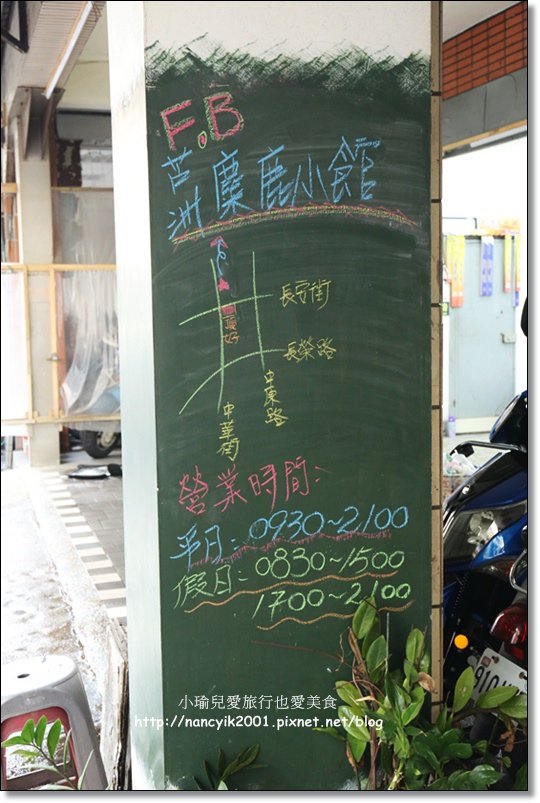 F.B
蘆洲麋鹿小館
長安街
頂好
長榮路
中東路
中華街
營業時間:
平日:0930~2100
假日:0830~1500
1700~2100
小瑜兒愛旅行也愛美食
http://nancyik2001.pixnet.net/blog